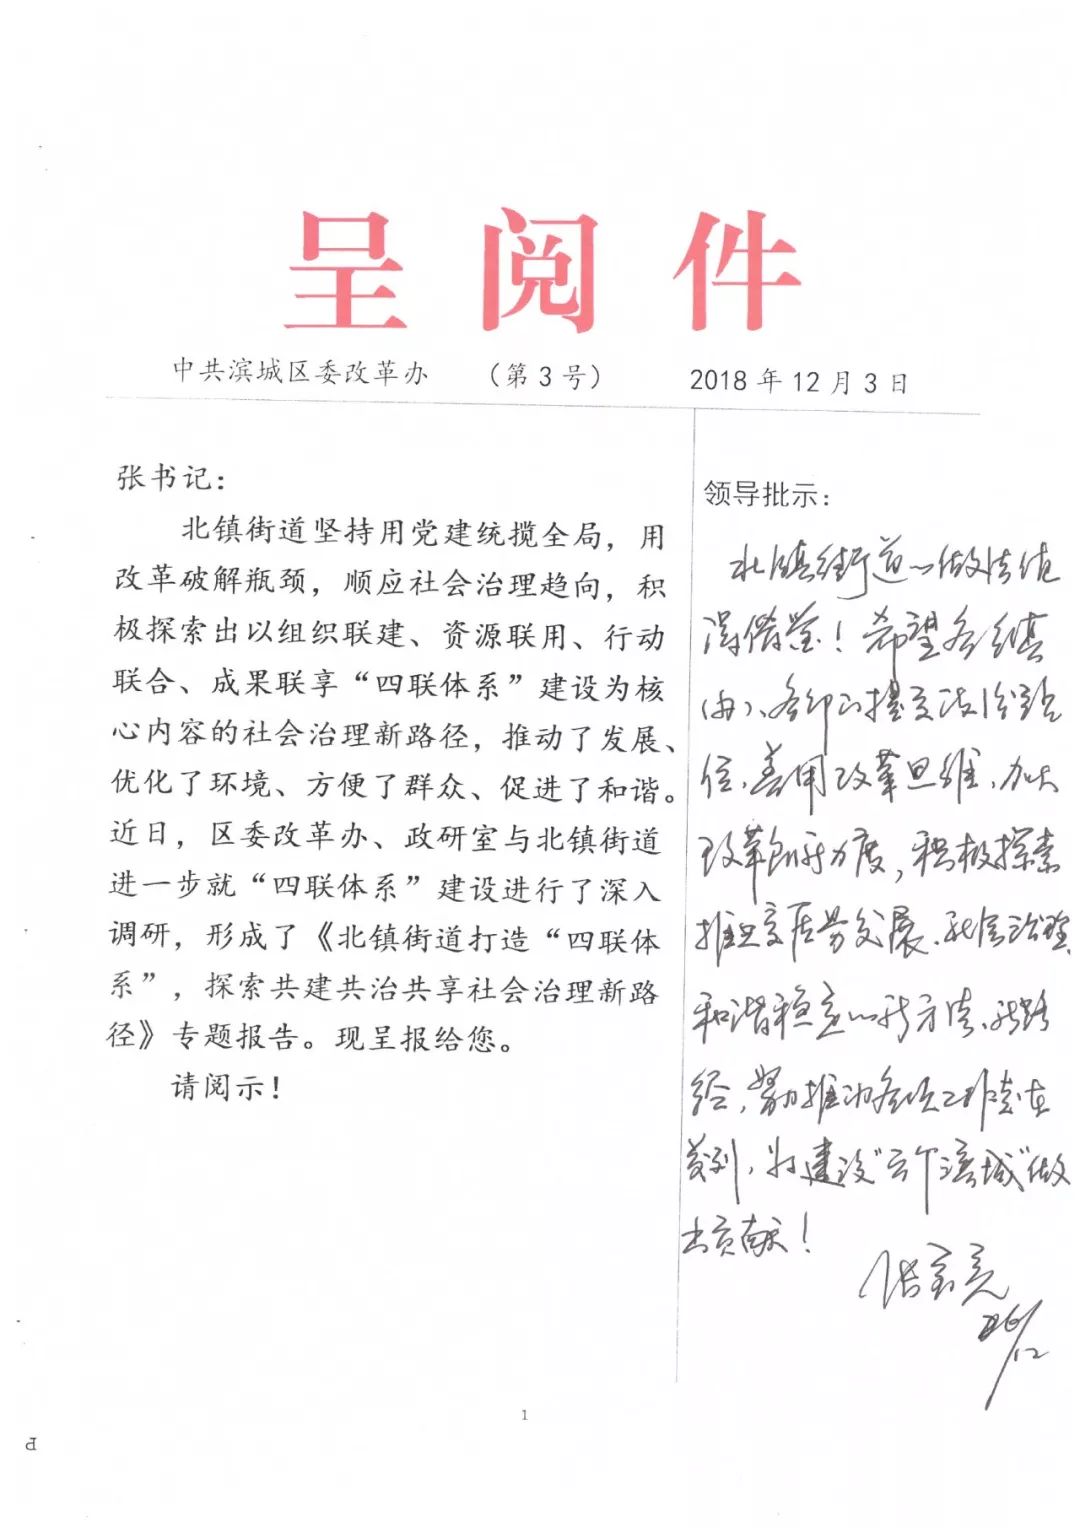 呈阅件
中共滨城区委改革办 （第3号） 2018年12月3日
张书记：
北镇街道坚持用党建统揽全局，用
改革破解瓶颈，顺应社会治理趋向，积
极探索出以组织联建、资源联用、行动
联合、成果联享“四联体系”建设为核
心内容的社会治理新路径，推动了发展、
优化了环境、方便了群众、促进了和谐。
近日，区委改革办、政研室与北镇街道
进一步就“四联体系”建设进行了深入
调研，形成了《北镇街道打造“四联体
系”，探索共建共治共享社会治理新路
径》专题报告。现呈报给您。
请阅示！
领导批示：
北镇街道的做法值
得借鉴！希望各乡镇
（办）、各部门提高政治站
位，善用改革思维，加大
改革创新力度，积极探索
发展、社会治理、
和谐稳定的新方法、新路
径，努力推动各项工作走在
前列，为建设“滨城”做
出贡献！
张宝亮
1